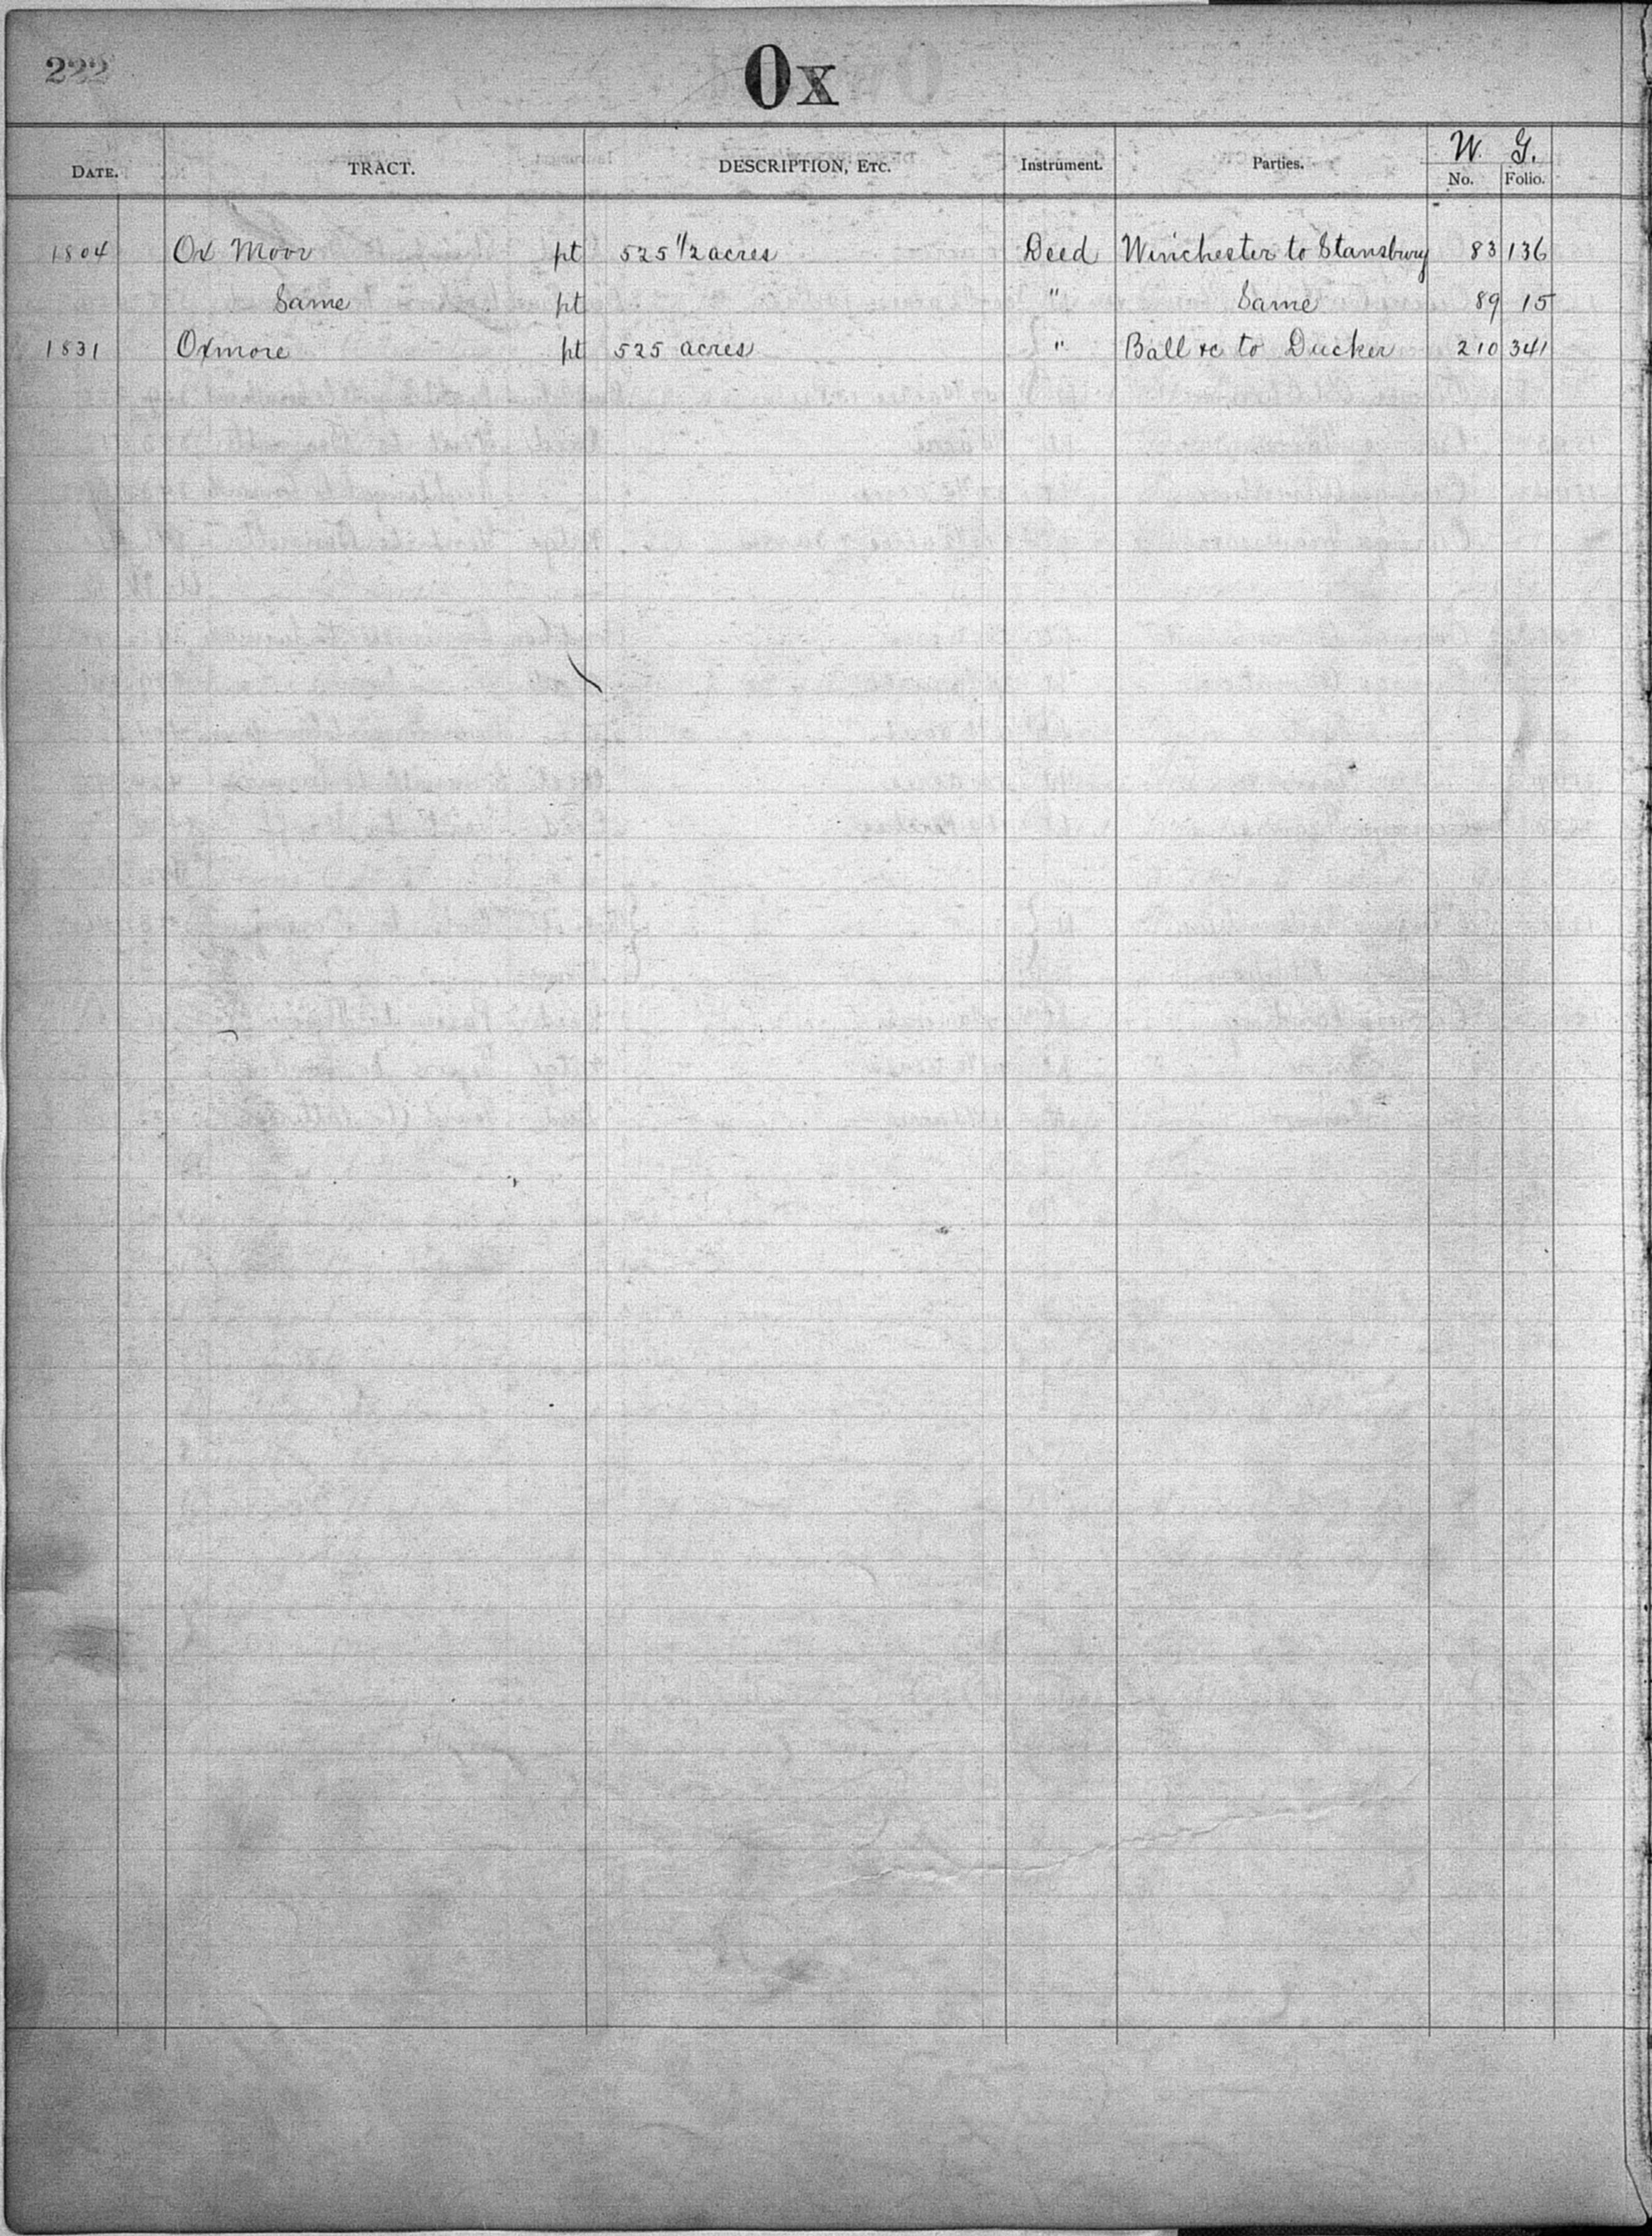 222
Ox
DATE. TRACT. DESCRIPTION, ETC. Instrument. Parties. W. G. No. Folio.
1804 Ox Moor pt 525 1/2 acres Deed Winchester to Stansbury 83 136
Same pt " Same 89 15
1831 Oxmore pt 525 acres " Ball &c to Ducker 210 341